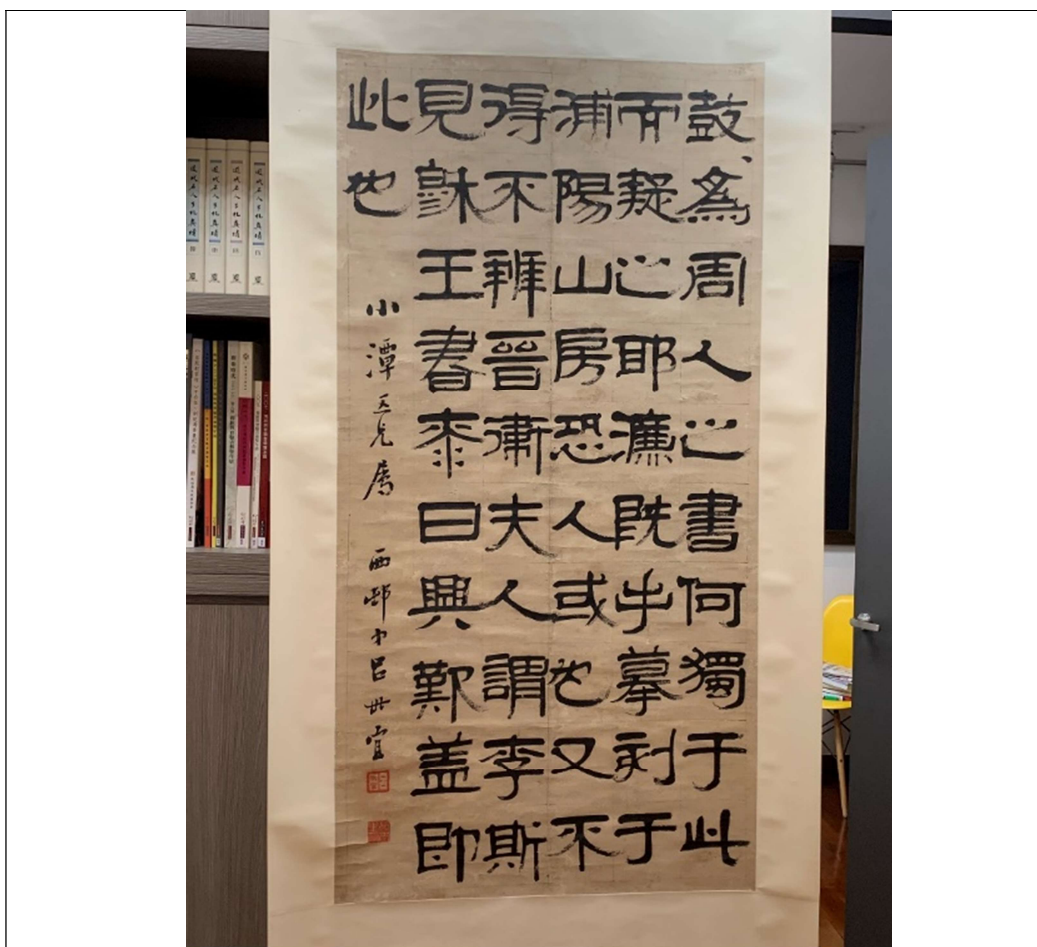 鼓為周人之書何獨于此
而疑之耶濂既手摹刻于
浦陽山房恐人或也又不
得不辨晉衛夫人謂李斯
見穆王書桼日興歎蓋即
此也
小潭五兄屬
西邨呂世宜